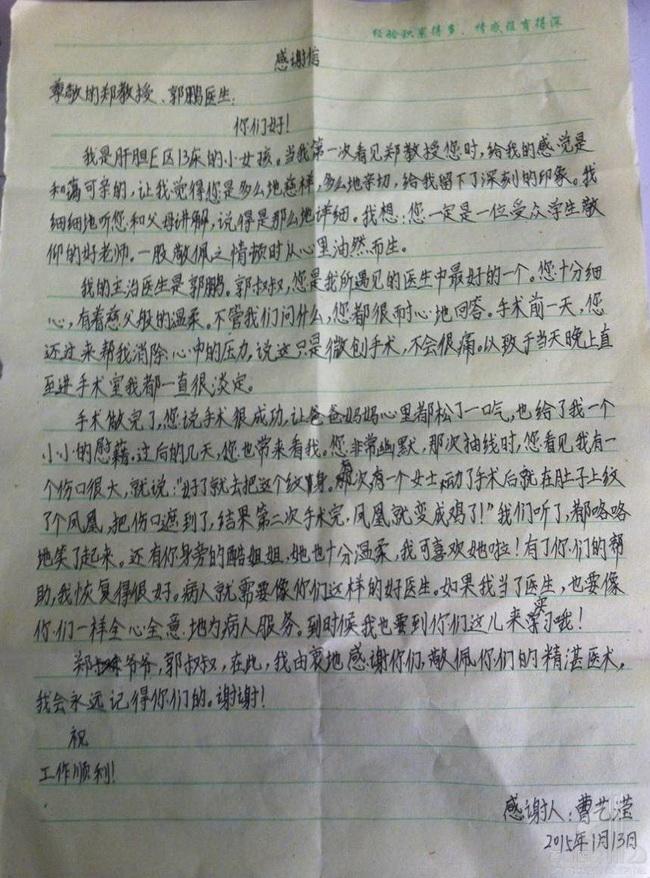 经验积累得多,情感很有得深
感谢信
尊敬的郑教授、郭鹏医生:
你们好!
我是肝胆E区13床的小女孩。当我第一次看见郑教授您时,给我的感觉是
和蔼可亲的,让我觉得您是多么地慈祥,多么地亲切,给我留下了深刻的印象。我
细细地听您和父母讲解,说得是那么地详细。我想:您一定是一位受众学生敬
仰的好老师。一股敬佩之情顿时从心里油然而生。
我的主治医生是郭鹏。郭叔叔,您是我所遇见的医生中最好的一个。您十分细
心,有着慈父般的温柔。不管我们问什么,您都很耐心地回答。手术前一天,您
还过来帮我消除心中的压力,说这只是微创手术,不会很痛。以致于当天晚上直
至进手术室我都一直很淡定。
手术做完了,您说手术很成功,让爸爸妈妈心里都松了一口气,也给了我一个
小小的慰藉。过后的几天,您也常来看我。您非常幽默,那次抽线时,您看见我有一
个伤口很大,就说:“好了就去把这个纹身。那次,有一个女士动了手术后就在肚子上纹
了个凤凰,把伤口遮到了,结果第二次手术完,凤凰就变成鸡了!”我们听了,都咯咯
地笑了起来。还有你身旁的酷姐姐,她也十分温柔,我可喜欢她啦!有了你们的帮
助,我恢复得很好。病人就需要像你们这样的好医生。如果我当了医生,也要像
你们一样全心全意地为病人服务。到时候我也要到你们这儿来实习哦!
郑爷爷,郭叔叔,在此,我由衷地感谢你们,敬佩你们的精湛医术。
我会永远记得你们的。谢谢!
祝
工作顺利!
感谢人:曹艺滢
2015年1月13日